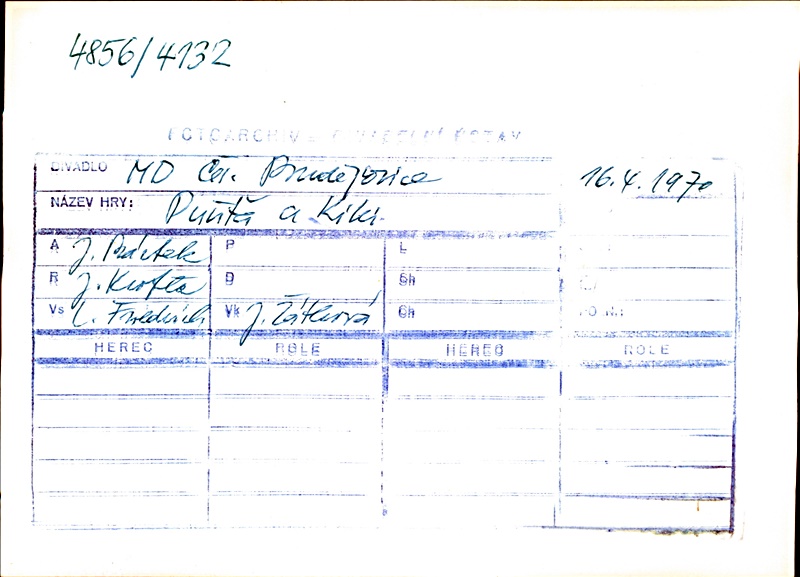 4856/4132
FOTOARCHIV - DIVADELNÍ ÚSTAV
DIVADLO MD Čes. Budějovice 16.4.1970
NÁZEV HRY: Punťa a Kiki
A J. Bártek P L
R J. Krofta D Sh
Vs L. Friedrich Vk J. Zátková Ch
HEREC ROLE HEREC ROLE